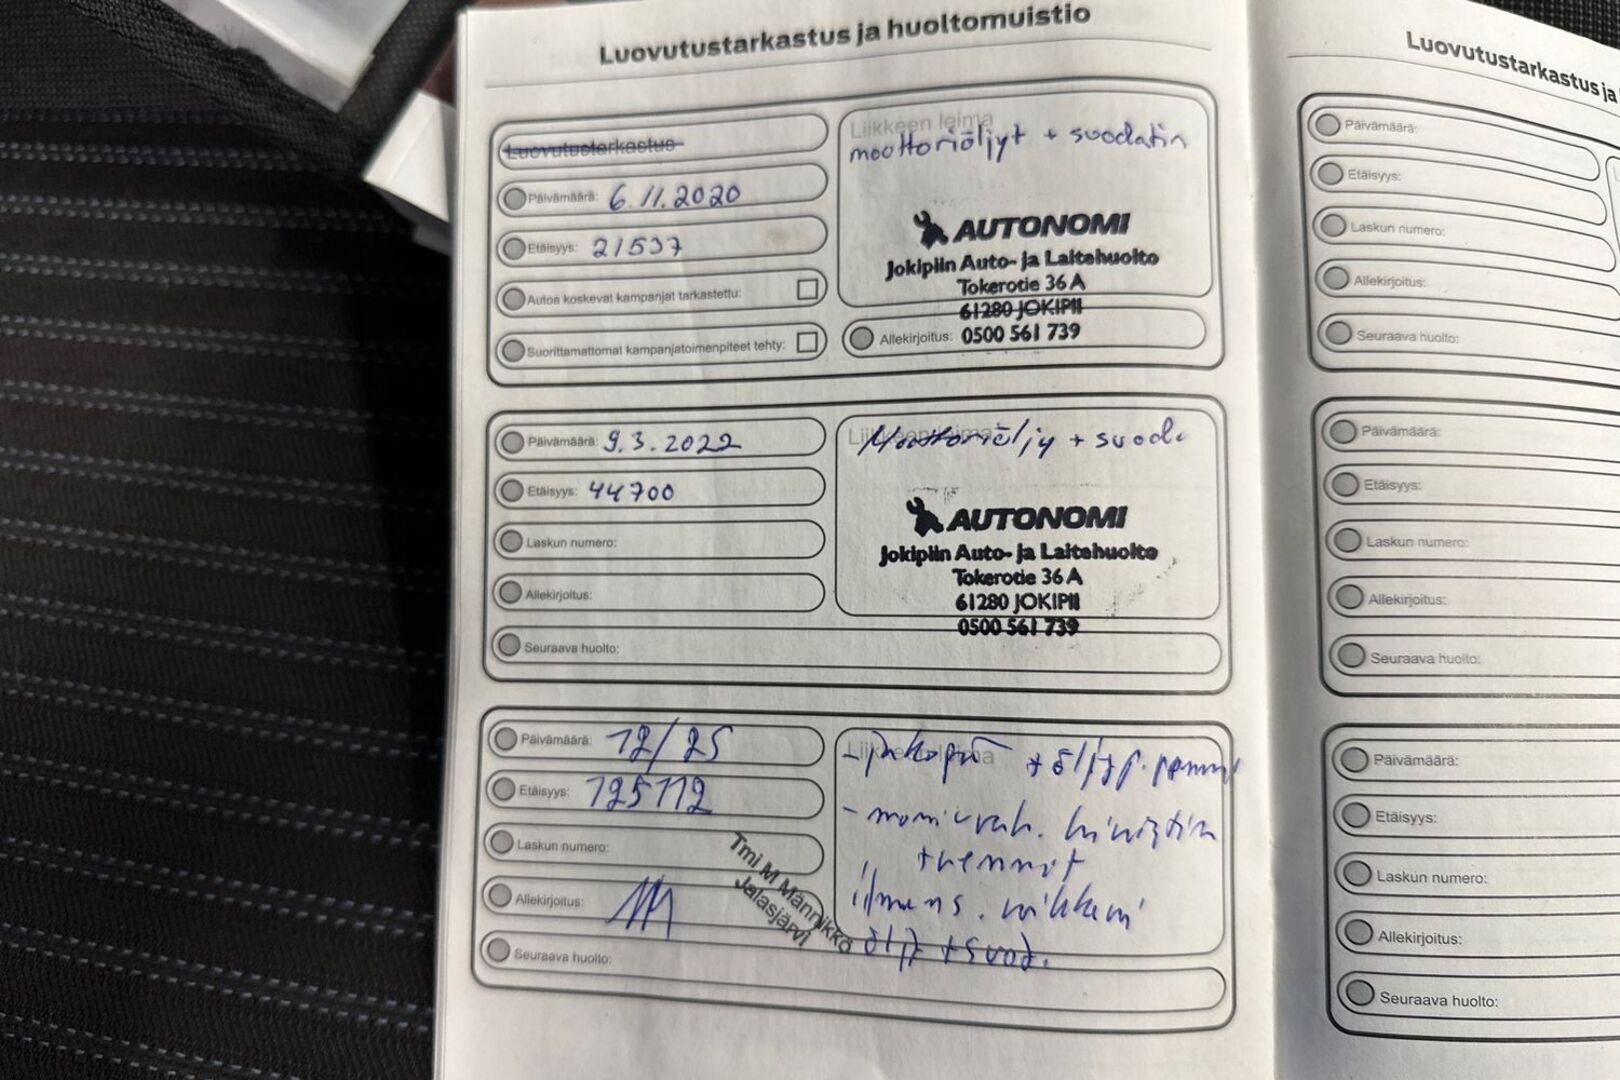 Luovutustarkastus ja huoltomuistio
Luovutustarkastus
Päivämäärä: 6.11.2020
Etäisyys: 21537
Autoa koskevat kampanjat tarkastettu:
Suorittamattomat kampanjatoimenpiteet tehty:
Liikkeen leima
moottoriöljyt + suodatin
AUTONOMI
Jokipiin Auto- ja Laitehuolto
Tokerotie 36 A
61280 JOKIPII
Allekirjoitus: 0500 561 739
Päivämäärä: 9.3.2022
Etäisyys: 44700
Laskun numero:
Allekirjoitus:
Seuraava huolto:
Liikkeen leima
Moottoriöljy + suod.
AUTONOMI
Jokipiin Auto- ja Laitehuolto
Tokerotie 36 A
61280 JOKIPII
0500 561 739
Päivämäärä: 12/25
Etäisyys: 125112
Laskun numero:
Allekirjoitus:
Seuraava huolto:
Tmi M Männikkö
Jalasjärvi
Liikkeen leima
- jakopää + öljyp.
- moniurah. kiristin
ilmans.
öljy + suod.
Luovutustarkastus ja
Päivämäärä:
Etäisyys:
Laskun numero:
Allekirjoitus:
Seuraava huolto:
Päivämäärä:
Etäisyys:
Laskun numero:
Allekirjoitus:
Seuraava huolto:
Päivämäärä:
Etäisyys:
Laskun numero:
Allekirjoitus:
Seuraava huolto: